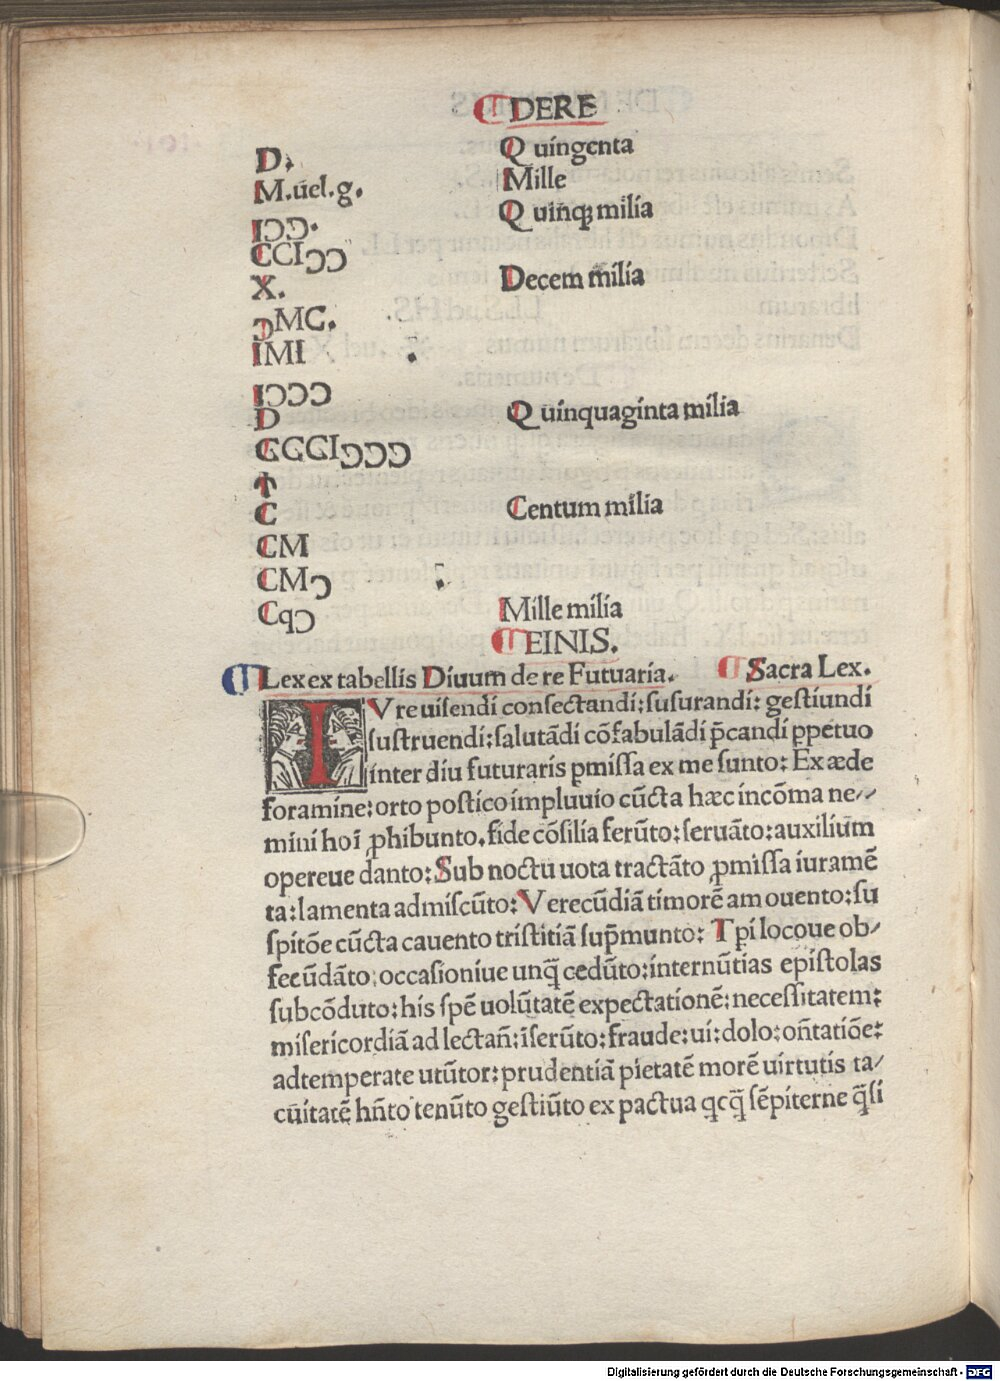 DERE
D. Quingenta
M.uel.g. Mille
IↃↃ. Quinqꝫ milia
CCIↃↃ
X. Decem milia
ↃMC.
IMI
IↃↃↃ
D Quinquaginta milia
CCCIↃↃↃ
C Centum milia
CM
CMↃ
CqↃ Mille milia
EINIS.
Lex ex tabellis Diuum de re Futuaria. Sacra Lex.
IVre uisendi consectandi: susurandi: gestiundi
sustruendi: salutādi cōfabulādi p̄candi ꝑpetuo
inter diu futuraris ꝑmissa ex me sunto: Ex æde
foramine: orto postico impluuio cūcta hæc incōma ne⸗
mini hoī ꝓhibunto. fide cōsilia ferūto: seruāto: auxilium
opereue danto: Sub noctu uota tractāto ꝓmissa iuramē
ta: lamenta admiscūto: Verecūdiā timorē amouento: su
spitōe cūcta cauento tristitiā sup̄munto: Tpi locoue ob⸗
secūdāto: occasioniue unq̄ cedūto: internūtias epistolas
subcōduto: his spē uolūtatē expectationē: necessitatem:
misericordiā ad lectan̄: īserūto: fraude: ui: dolo: on̄tatiōe:
adtemperate utūtor: prudentiā pietatē morē uirtutis ta⸗
cūitatē hn̄to tenūto gestiūto ex pactua qcq̄ sēpiterne q̄si
Digitalisierung gefördert durch die Deutsche Forschungsgemeinschaft - DFG